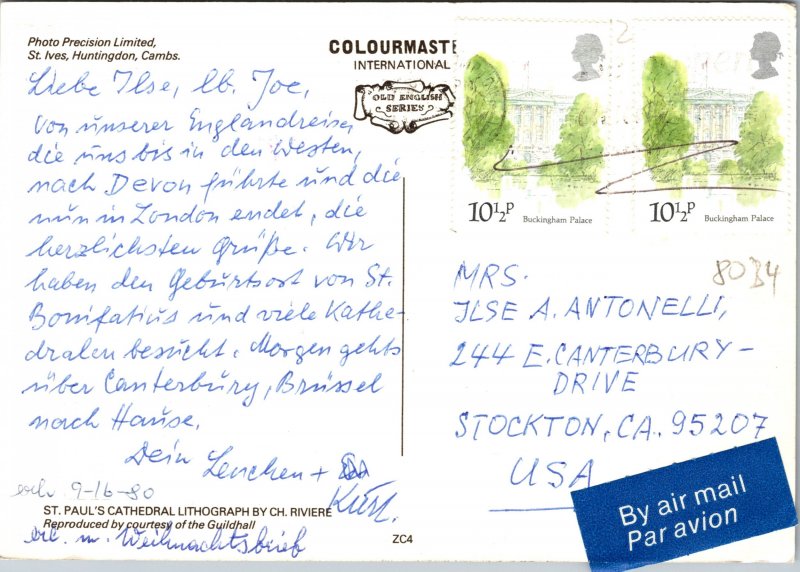 Photo Precision Limited,
St. Ives, Huntingdon, Cambs.
COLOURMASTE
INTERNATIONAL
OLD ENGLISH
SERIES
Liebe Ilse, lb. Joe,
von unserer Englandreise,
die uns bis in den Westen,
nach Devon führte und die
nun in London endet, die
herzlichsten Grüße. Wir
haben den Geburtsort von St.
Bonifatius und viele Kathe-
dralen besucht. Morgen gehts
über Canterbury, Brüssel
nach Hause.
Dein Lenchen +
Kurt.
erh. 9-16-80
ST. PAUL'S CATHEDRAL LITHOGRAPH BY CH. RIVIERE
Reproduced by courtesy of the Guildhall
erl. m. Weihnachtsbrief
ZC4
10½P Buckingham Palace
10½P Buckingham Palace
80B4
MRS.
ILSE A. ANTONELLI,
244 E. CANTERBURY-
DRIVE
STOCKTON, CA. 95207
USA
By air mail
Par avion